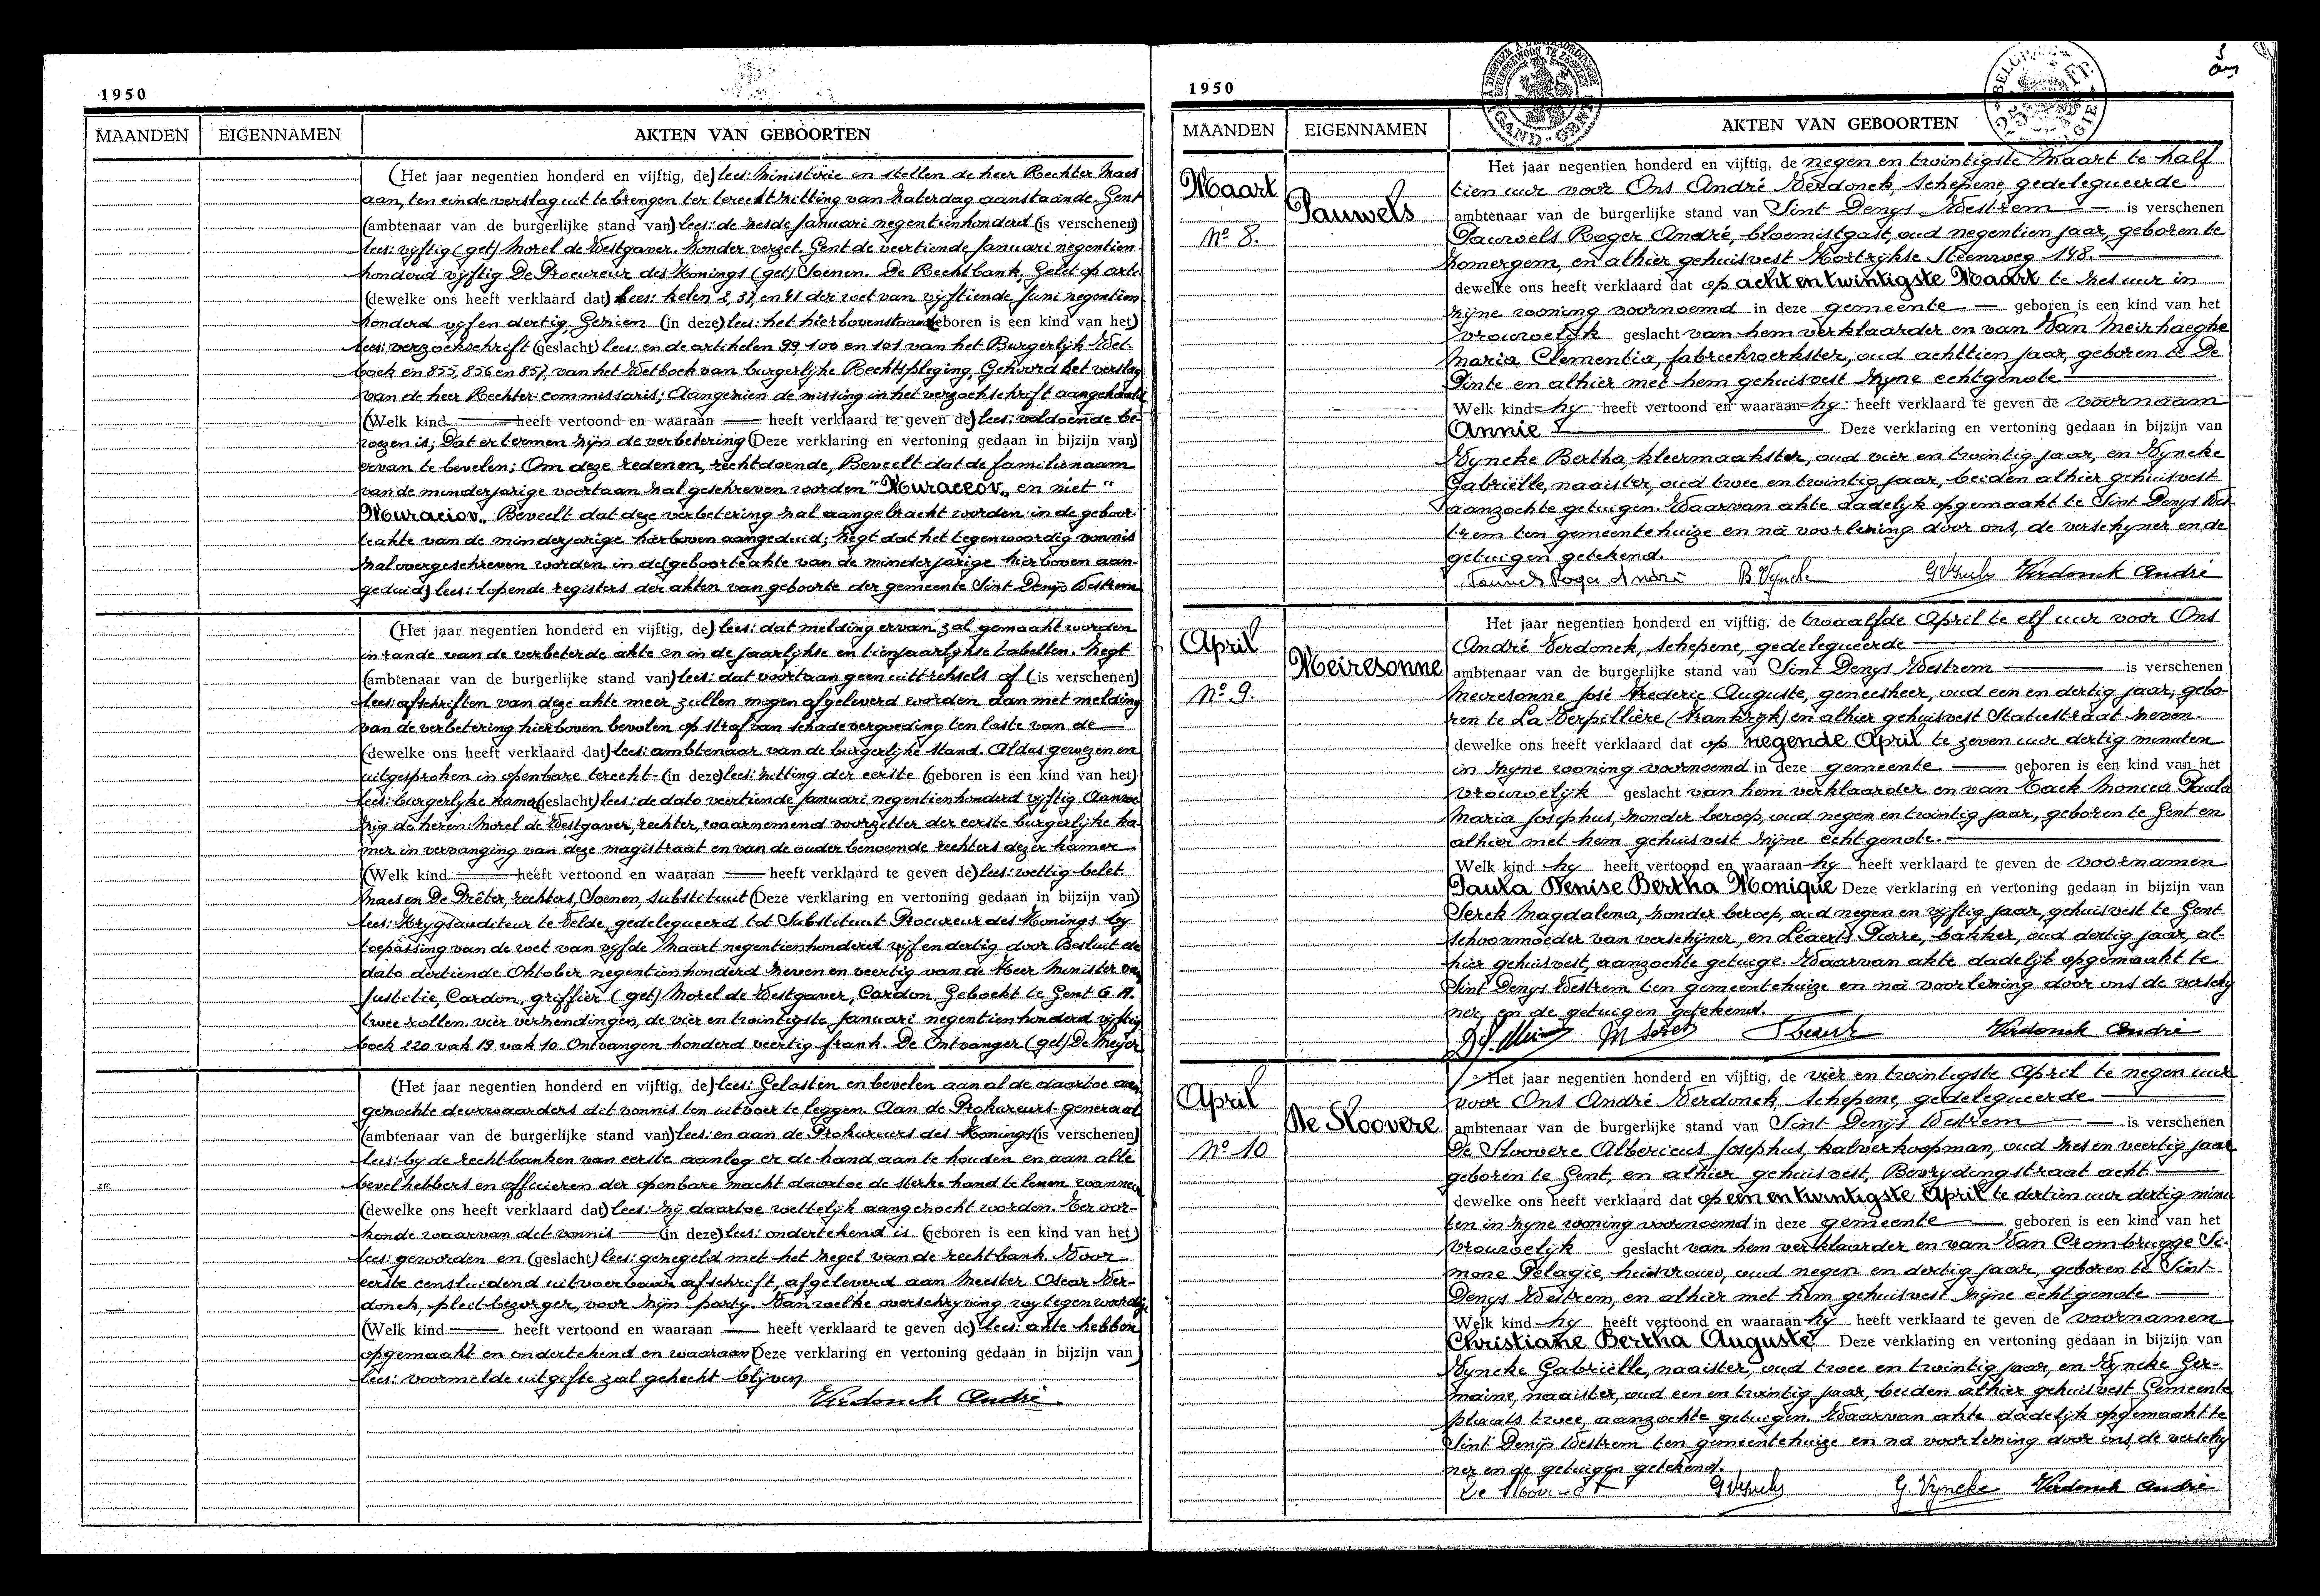 1950
MAANDEN EIGENNAMEN AKTEN VAN GEBOORTEN
(Het jaar negentien honderd en vijftig, de) lees: Ministerie en stellen de heer Rechter Maes
aan, ten einde verslag uit te brengen ter terechtzitting van zaterdag aanstaande. Gent
(ambtenaar van de burgerlijke stand van) lees: de zesde Januari negentienhonderd (is verschenen)
lees: vijftig (get) Morel de Westgaver. Zonder verzet. Gent de veertiende Januari negentien
honderd vijftig De Procureur des Konings (get) Soenen. De Rechtbank, Gelet op arti-
(dewelke ons heeft verklaard dat) lees: kelen 2, 37, en 41 der wet van vijftiende Juni negentien
honderd vijf en dertig, Gezien (in deze) lees: het hierbovenstaand (geboren is een kind van het)
lees: verzoekschrift (geslacht) lees: en de artikelen 99, 100 en 101 van het Burgerlijk Wet-
boek en 855, 856 en 857, van het Wetboek van burgerlijke Rechtspleging, Gehoord het verslag
van de heer Rechter-commissaris; Aangezien de missing in het verzoekschrift aangehaald
(Welk kind heeft vertoond en waaraan heeft verklaard te geven de) lees: voldoende be-
wezen is; Dat er termen zijn de verbetering (Deze verklaring en vertoning gedaan in bijzijn van)
ervan te bevelen; Om deze redenen, rechtdoende, Beveelt dat de familienaam
van de minderjarige voortaan zal geschreven worden "Muraceov" en niet "
Muraciov". Beveelt dat deze verbetering zal aangebracht worden in de geboor-
teakte van de minderjarige hierboven aangeduid; Zegt dat het tegenwoordig vonnis
zal overgeschreven worden in de (geboorteakte van de minderjarige hierboven aan-
geduid) lees: lopende registers der akten van geboorte der gemeente Sint Denijs Westrem
(Het jaar negentien honderd en vijftig, de) lees: dat melding ervan zal gemaakt worden
in rande van de verbeterde akte en in de jaarlijkse en tienjaarlijkse tabellen. Zegt
(ambtenaar van de burgerlijke stand van) lees: dat voortaan geen uittreksels of (is verschenen)
lees: afschriften van deze akte meer zullen mogen afgeleverd worden dan met melding
van de verbetering hierboven bevolen op straf van schadevergoeding ten laste van de
(dewelke ons heeft verklaard dat) lees: ambtenaar van de burgerlijke stand. Aldus gewezen en
uitgesproken in openbare terecht- (in deze) lees: zitting der eerste (geboren is een kind van het)
lees: burgerlijke kamer (geslacht) lees: de dato veertiende Januari negentienhonderd vijftig. Aanwe-
zig de heren: Morel de Westgaver, rechter, waarnemend voorzitter der eerste burgerlijke ka-
mer in vervanging van deze magistraat en van de ouder benoemde rechters dezer kamer
(Welk kind heeft vertoond en waaraan heeft verklaard te geven de) lees: wettig belet.
Maes en De Prêter, rechters, Soenen, substituut (Deze verklaring en vertoning gedaan in bijzijn van)
lees: Krijgsauditeur te Velde, gedelegueerd tot Substituut Procureur des Konings by
toepassing van de wet van vijfde Maart negentienhonderd vijf en dertig door Besluit de
dato dertiende Oktober negentienhonderd zeven en veertig van de Heer Minister van
Justitie, Cardon, griffier (get) Morel de Westgaver, Cardon. Geboekt te Gent G.A.
twee rollen. vier verzendingen, de vier en twintigste Januari negentienhonderd vijftig
boek 220 vak 19 vak 10. Ontvangen honderd veertig frank. De Ontvanger (get) De Meyer
(Het jaar negentien honderd en vijftig, de) lees: Gelasten en bevelen aan al de daartoe aan
gezochte deurwaarders dit vonnis ten uitvoer te leggen. Aan de Prokureurs-generaal
(ambtenaar van de burgerlijke stand van) lees: en aan de Prokureurs des Konings (is verschenen)
lees: by de rechtbanken van eerste aanleg er de hand aan te houden en aan alle
bevelhebbers en officieren der openbare macht daartoe de sterke hand te lenen wanneer
(dewelke ons heeft verklaard dat) lees: zij daartoe wettelijk aangezocht worden. Ter oor-
konde waarvan dit vonnis (in deze) lees: ondertekend is (geboren is een kind van het)
lees: geworden en (geslacht) lees: gezegeld met het zegel van de rechtbank. Voor
eerste eensluidend uitvoerbaar afschrift, afgeleverd aan Meester Oscar Ver-
donck, pleit-bezorger, voor zijn party. Van welke overschryving wy tegenwoordige
(Welk kind heeft vertoond en waaraan heeft verklaard te geven de) lees: akte hebben
opgemaakt en ondertekend en waaraan (Deze verklaring en vertoning gedaan in bijzijn van)
lees: voormelde uitgifte zal gehecht blijven
Verdonck André.
1950
GAND-GENT
BELGIË 25 Fr.
MAANDEN EIGENNAMEN AKTEN VAN GEBOORTEN
Maart
No 8.
Pauwels
Het jaar negentien honderd en vijftig, de negen en twintigste Maart te half
tien uur voor Ons André Verdonck, Schepene, gedelegueerde
ambtenaar van de burgerlijke stand van Sint Denys Westrem is verschenen
Pauwels Roger André, bloemistgast, oud negentien jaar, geboren te
Zomergem, en alhier gehuisvest Kortrijkse Steenweg 148.
dewelke ons heeft verklaard dat op acht en twintigste Maart te zes uur in
zijne woning voornoemd in deze gemeente geboren is een kind van het
vrouwelijk geslacht van hem verklaarder en van Van Meirhaeghe
Maria Clementia, fabriekwerkster, oud achttien jaar, geboren te De
Pinte en alhier met hem gehuisvest zijne echtgenote
Welk kind hy heeft vertoond en waaraan hy heeft verklaard te geven de voornaam
Annie Deze verklaring en vertoning gedaan in bijzijn van
Vyncke Bertha, kleermaakster, oud vier en twintig jaar, en Vyncke
Gabriëlle, naaister, oud twee en twintig jaar, beiden alhier gehuisvest
aanzochte getuigen. Waarvan akte dadelijk opgemaakt te Sint Denys Wes-
trem ten gemeentehuize en nà voorlezing door ons, de verschyner en de
getuigen getekend.
Pauwels Roger André B. Vyncke G Vyncke Verdonck André
April
No 9.
Meiresonne
Het jaar negentien honderd en vijftig, de twaalfde April te elf uur voor Ons
André Verdonck, Schepene, gedelegueerde
ambtenaar van de burgerlijke stand van Sint Denys Westrem is verschenen
Meiresonne José Frederic Auguste, geneesheer, oud een en dertig jaar, gebo-
ren te La Verpillière (Frankrijk) en alhier gehuisvest Statiestraat zeven.
dewelke ons heeft verklaard dat op negende April te zeven uur dertig minuten
in zijne woning voornoemd in deze gemeente geboren is een kind van het
vrouwelijk geslacht van hem verklaarder en van Tack Monica Paula
Maria Josephus, zonder beroep, oud negen en twintig jaar, geboren te Gent en
alhier met hem gehuisvest zijne echtgenote.
Welk kind hy heeft vertoond en waaraan hy heeft verklaard te geven de voornamen
Paula Denise Bertha Monique Deze verklaring en vertoning gedaan in bijzijn van
Serck Magdalena, zonder beroep, oud negen en vijftig jaar, gehuisvest te Gent
schoonmoeder van verschijner, en Léaerts Pierre, bakker, oud dertig jaar, al-
hier gehuisvest, aanzochte getuige. Waarvan akte dadelijk opgemaakt te
Sint Denys Westrem ten gemeentehuize en nà voorlezing door ons de verschy
ner en de getuigen getekend.
Verdonck André
April
No 10
De Sloovere
Het jaar negentien honderd en vijftig, de vier en twintigste April te negen uur
voor Ons André Verdonck, Schepene, gedelegueerde
ambtenaar van de burgerlijke stand van Sint Denijs Westrem is verschenen
De Sloovere Albericus Josephus, kalverkoopman, oud zes en veertig jaar
geboren te Gent, en alhier gehuisvest, Bevrydingstraat acht
dewelke ons heeft verklaard dat op een en twintigste April te dertien uur dertig minu
ten in zijne woning voornoemd in deze gemeente geboren is een kind van het
vrouwelijk geslacht van hem verklaarder en van Van Crombrugge Si-
mone Pelagie, huisvrouw, oud negen en dertig jaar, geboren te Sint-
Denys Westrem, en alhier met hem gehuisvest zijne echtgenote
Welk kind hy heeft vertoond en waaraan hy heeft verklaard te geven de voornamen
Christiane Bertha Auguste Deze verklaring en vertoning gedaan in bijzijn van
Vyncke Gabriëlle, naaister, oud twee en twintig jaar, en Vyncke Ger-
maine, naaister, oud een en twintig jaar, beiden alhier gehuisvest Gemeente
plaats twee, aanzochte getuigen. Waarvan akte dadelijk opgemaakt te
Sint Denijs Westrem ten gemeentehuize en nà voorlezing door ons, de verschy
ner en de getuigen getekend.
G Vyncke G. Vyncke Verdonck André